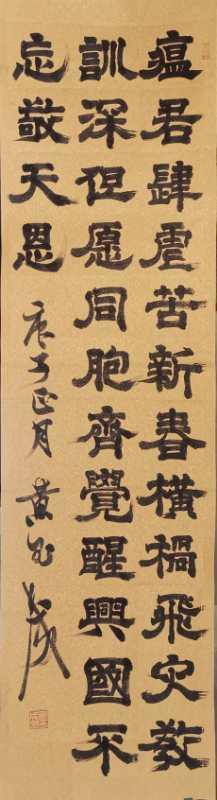 瘟君肆虐苦新春橫禍飛灾教
訓深但愿同胞齊覺醒興國不
忘敬天恩
庚子正月